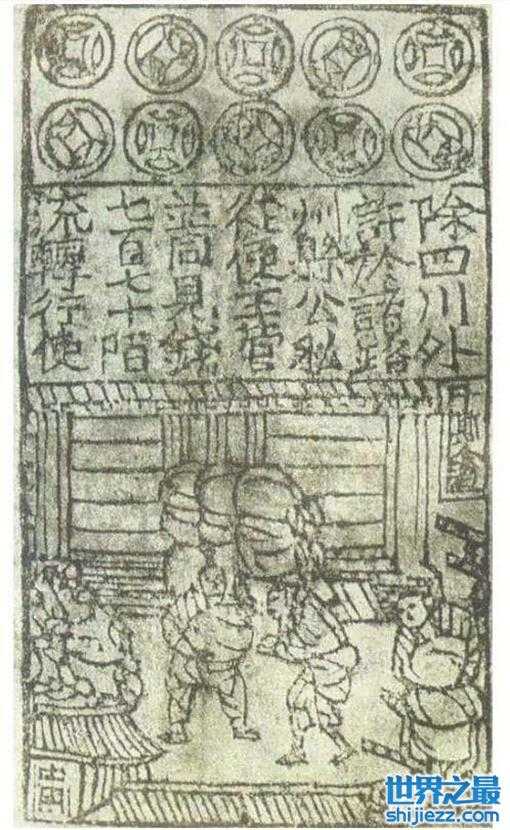 除四川外
許於諸路
州縣公私
從便主管
並同見錢
七百七十陌
流轉行使
千斯倉
世界之最
shijiezz.com